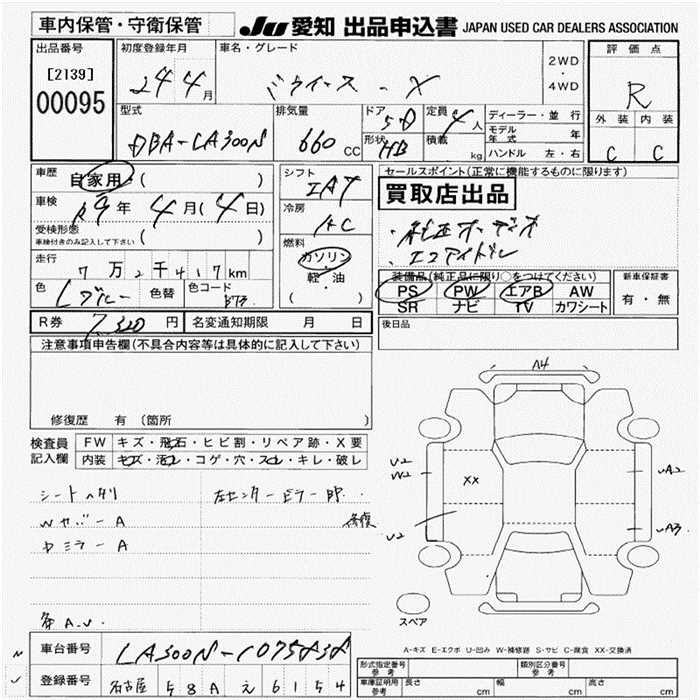 車内保管・守衛保管
JU 愛知 出品申込書 JAPAN USED CAR DEALERS ASSOCIATION
出品番号 初度登録年月 車名・グレード 評価点
[2139] 24 4月 X 2WD・4WD R
00095 型式 排気量 ドア 定員 ディーラー・並行 外装 内装
DBA-LA300N 660 CC 5D 4人 モデル年式 年
形状 HB 積載 kg ハンドル 左・右 C C
車歴 自家用 ( ) シフト IAT セールスポイント(正常に機能するものに限ります)
車検 R9年4月(4日) 冷房 AC 買取店出品
受検形態 ( )
車検付きのみ記入して下さい
・純正オーディオ
・エコアイドル
燃料 ガソリン・軽・油 ( )
走行 7万2千417km
装備品(純正品に限り○をつけてください) 新車保証書
色 Lブルー 色替 色コード PS PW エアB AW 有・無
SR ナビ TV カワシート
R券 7,320円 名変通知期限 月 日 後日品
注意事項申告欄(不具合内容等は具体的に記入して下さい)
修復歴 有 (箇所 )
検査員記入欄 FW キズ・飛石・ヒビ割・リペア跡・X要
内装 キズ・汚レ・コゲ・穴・スレ・キレ・破レ
A4
シートヘタリ 左センターピラー
U2 W2 XX UA2
Wセバー A 修復
ドミラー A U2 UA3
スペア
各A.U.
A-キズ E-エクボ U-凹み W-補修跡 S-サビ C-腐食 XX-交換済
車台番号 LA300N-1075838
型式指定番号 参考 類別区分番号 参考
登録番号 名古屋 58A え 6154
車庫証明用 参考 長さ cm 幅 cm 高さ cm